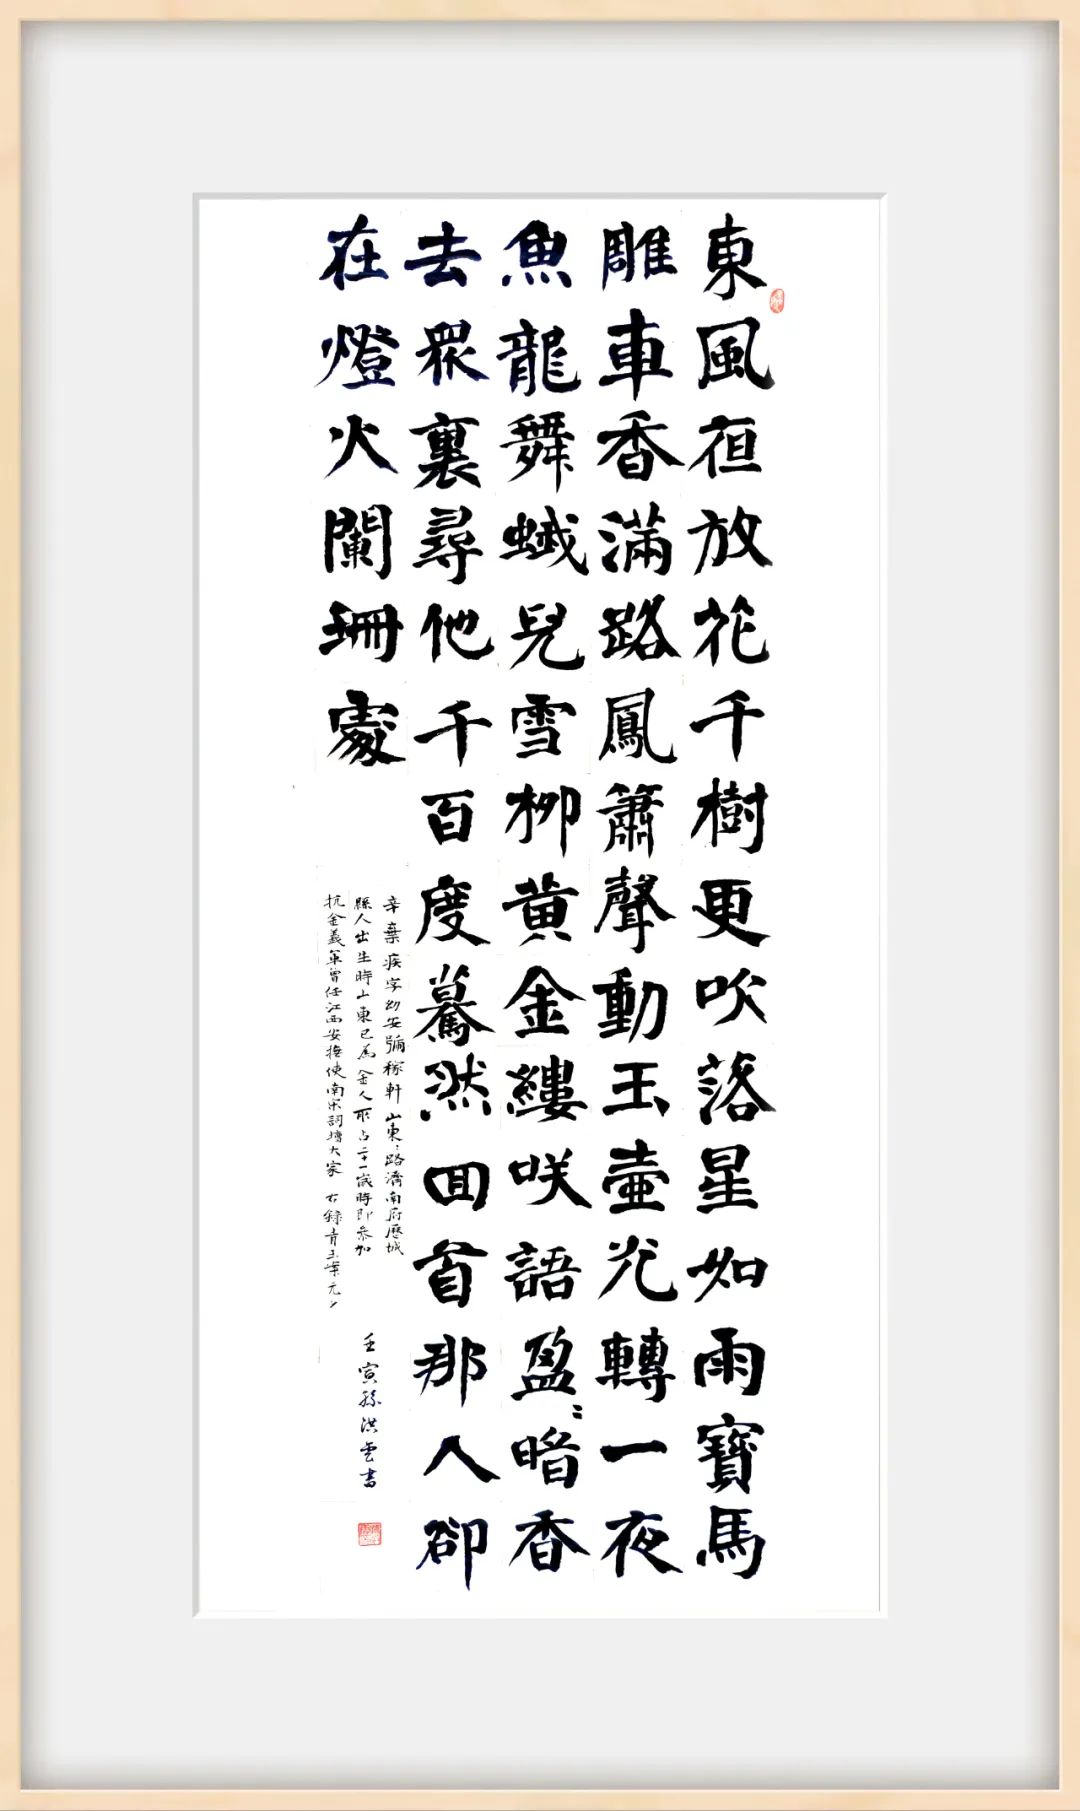 東風亱放花千樹更吹落星如雨寶馬
雕車香滿路鳳簫聲動玉壺光轉一夜
魚龍舞蛾兒雪柳黄金縷咲語盈〻暗香
去衆裏尋他千百度驀然囬首那人卻
在燈火闌珊處
辛棄疾字幼安號稼軒山東〻路濟南府歷城
縣人出生時山東已為金人所占二十一歲時即參加
抗金義軍曾任江西安撫使南宋詞壇大家 右錄青玉案元夕
壬寅孫洪雲書